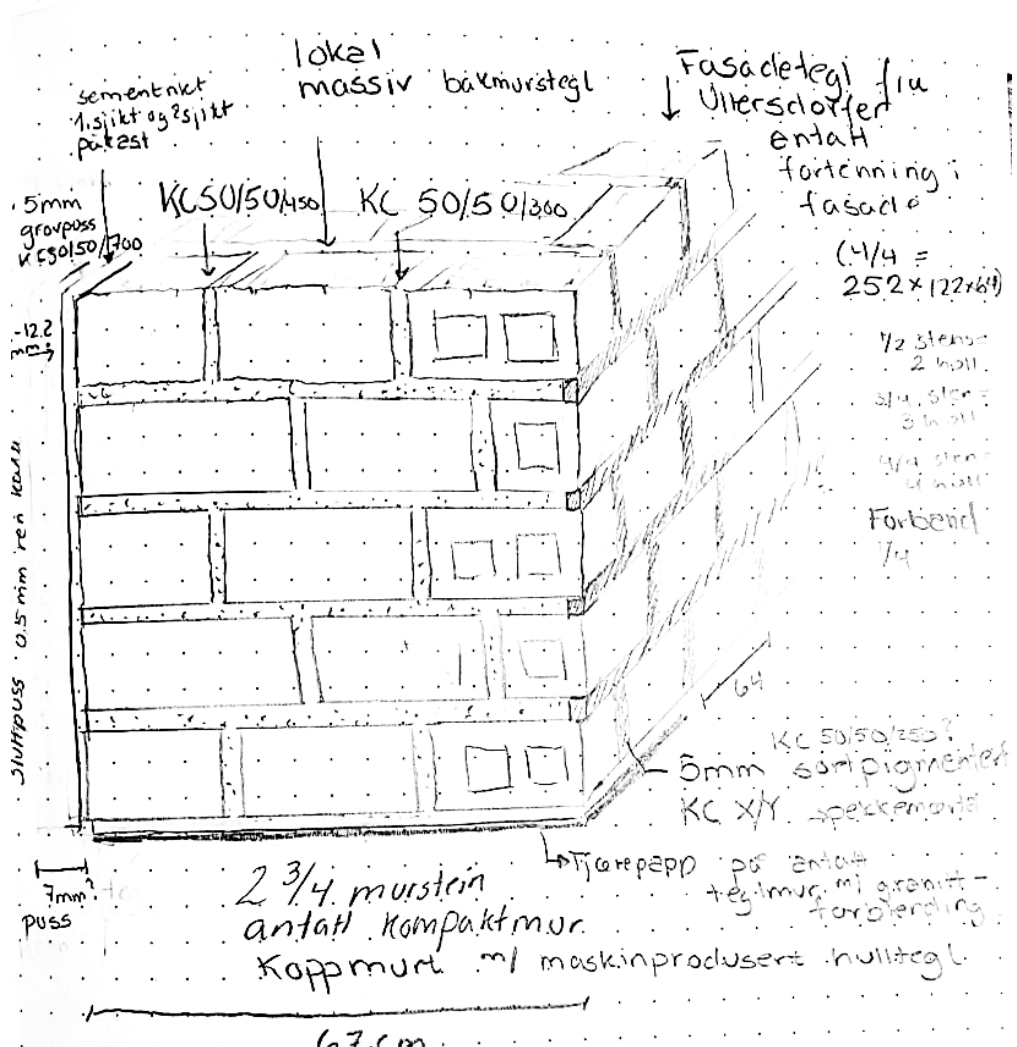 lokal
massiv bakmurstegl
sementrikt
1.sjikt og 2sjikt
påkast
Fasadetegl fra
Ullersdorfer
antatt
fortenning i
fasade
(4/4 =
252x122x64)
5mm
grovpuss
KC50/50/700
KC50/50/450
KC 50/50/300
-12.2
mm
1/2 stens=
2 hull
3/4 sten=
3 hull
4/4 sten=
4 hull
Forband
1/4
Sluttpuss 0.5 mm ren kalk
64
KC 50/50/250?
5mm sortpigmentert
KC X/Y spekkemørtel
Tjærepapp på antatt
teglmur m/ granitt-
forblending
7mm?
puss
2 3/4 murstein
antatt kompaktmur
Koppmurt m/ maskinprodusert hulltegl
67 cm